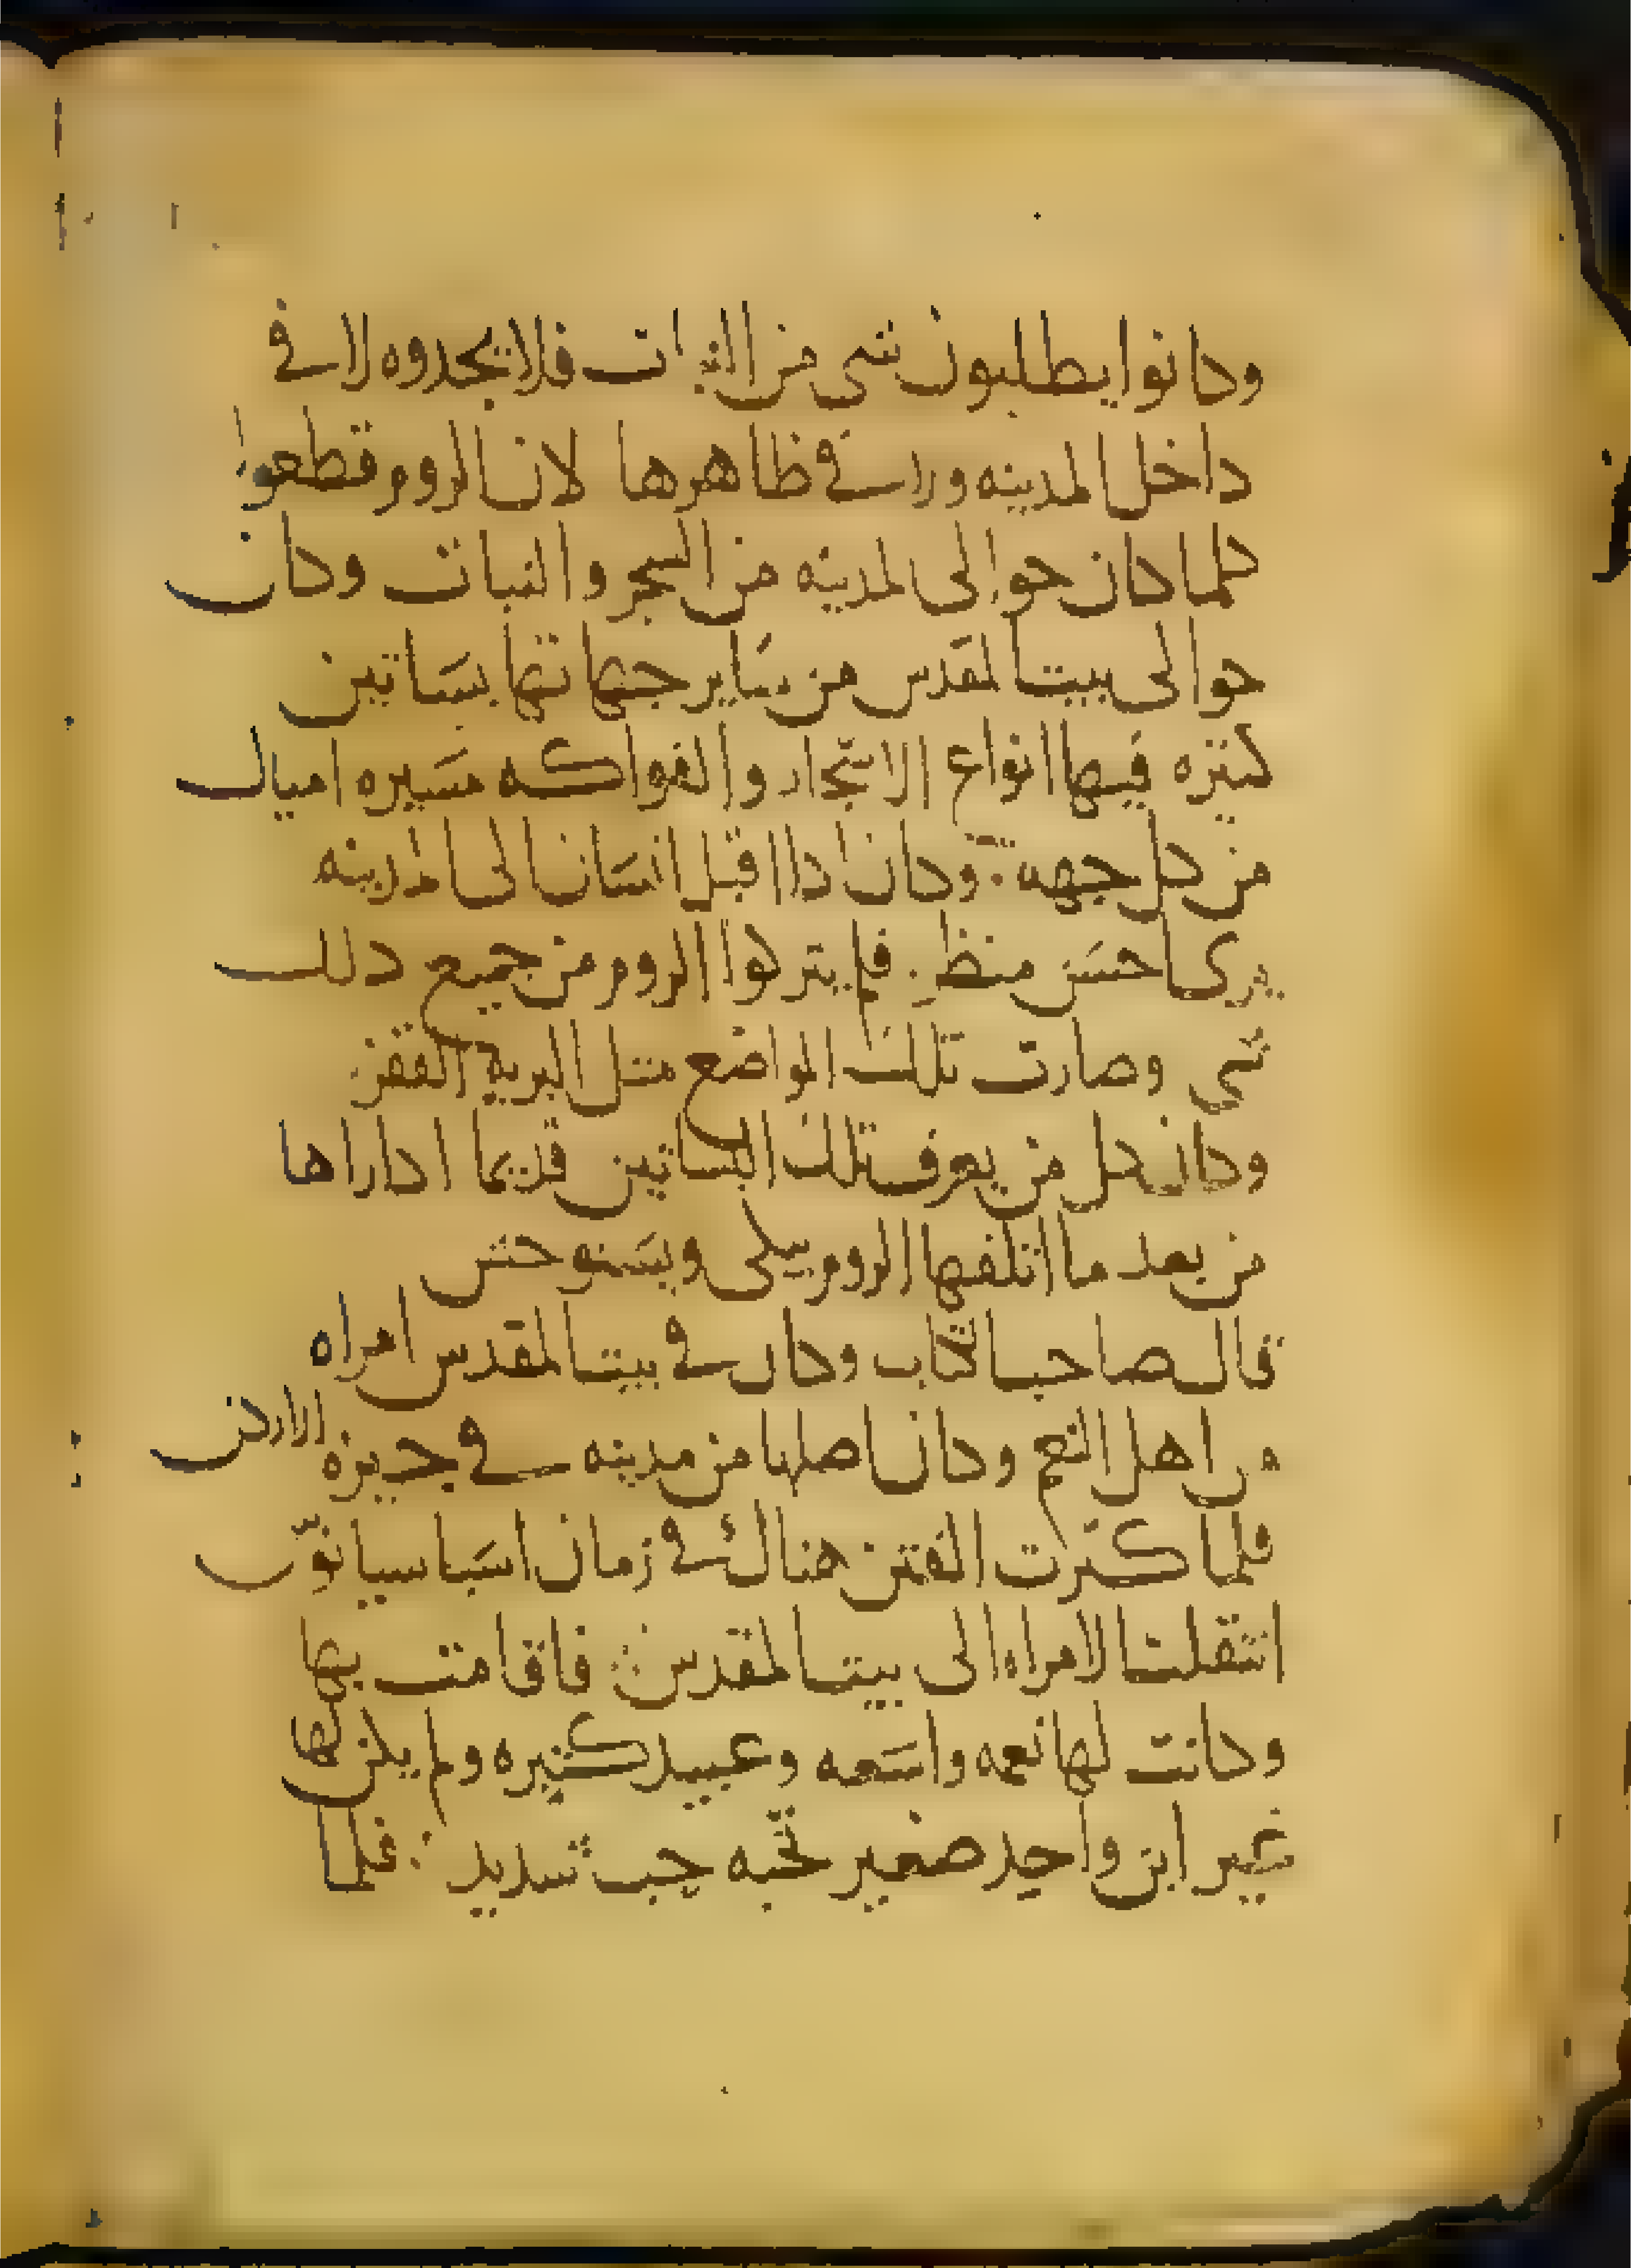 وكانوا يطلبون شي من النبات فلا يجدوه لا في
داخل المدينه ولا في ظاهرها لان الروم قطعوا
كلما كان حوالى المدينه من الشجر والنبات وكان
حوالى بيت المقدس من ساير جهاتها بساتين
كثيره فيها انواع الاشجار والفواكه مسيره اميال
من كل جهه وكان اذا اقبل انسان الى المدينه
يرى احسن منظر فلم يتركوا الروم من جميع دلك
شي وصارت تلك المواضع مثل البريه القفر
وكان كل من يعرف تلك البساتين قديما اذا راها
من بعد ما اتلفها الروم يبكى ويستوحش
قال صاحب الكتاب وكان في بيت المقدس امراه
من اهل النعم وكان اصلها من مدينه في جيزه الاردن
فلما كثرت الفتن هناك في زمان اسباسيانوس
انتقلت الامراه الى بيت المقدس فاقامت بها
وكانت لها نعمه واسعه وعبيد كثيره ولم يكن لها
غير ابن واحد صغير تحبه حب شديد فلما